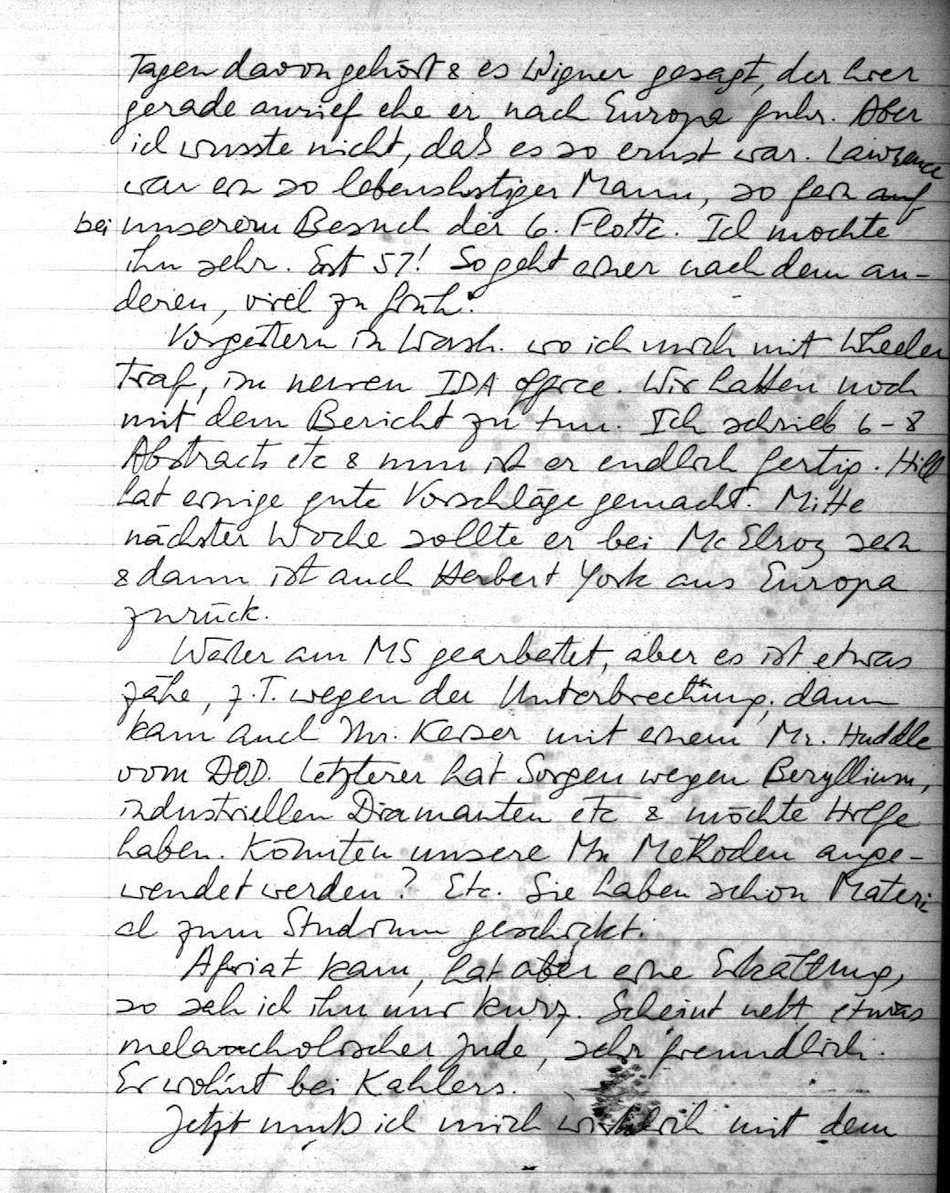 Tagen davon gehört & es Wigner gesagt, der hier
gerade anrief ehe er nach Europa fuhr. Aber
ich wusste nicht, daß es so ernst war. Lawrence
war ein so lebenslustiger Mann, so fein auf
bei unserem Besuch der 6. Flotte. Ich mochte
ihn sehr. Erst 57! So geht einer nach dem an-
deren, viel zu früh.
Vorgestern in Wash. wo ich mich mit Wheeler
traf, im neuen IDA office. Wir hatten noch
mit dem Bericht zu tun. Ich schrieb 6-8
Abstracts etc & nun ist er endlich fertig. Hill
hat einige gute Vorschläge gemacht. Mitte
nächster Woche sollte er bei McElroy sein
& dann ist auch Herbert York aus Europa
zurück.
Weiter am MS gearbeitet, aber es ist etwas
zähe, z.T. wegen der Unterbrechung; dann
kam auch Mr. Keiser mit einem Mr. Huddle
vom DOD. Letzterer hat Sorgen wegen Beryllium,
industriellen Diamanten etc & möchte Hilfe
haben. Könnten unsere Mx Methoden ange-
wendet werden? Etc. Sie haben schon Materi
al zum Studium geschickt.
Afriat kam, hat aber eine Erkältung,
so sah ich ihn nur kurz. Scheint nett etwas
melancholischer Jude, sehr freundlich.
Er wohnt bei Kahlers.
Jetzt muß ich mich wirklich mit dem